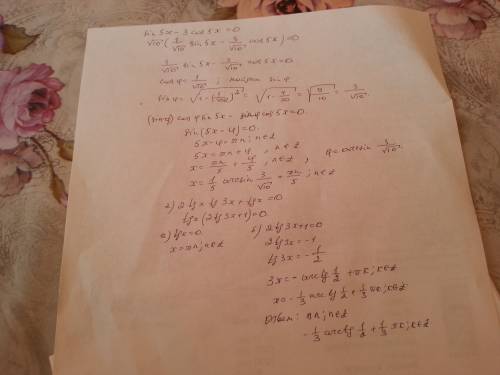 sin 5x - 3 cos 5x = 0
√10 (1/√10 sin 5x - 3/√10 cos 5x) = 0
1/√10 sin 5x - 3/√10 cos 5x = 0
cos φ = 1/√10 ; найдём sin φ
sin φ = √(1 - (1/√10)²) = √(1 - 1/10) = √(9/10) = 3/√10
cos φ sin 5x - sin φ cos 5x = 0
sin (5x - φ) = 0
5x - φ = πn ; n∈Z
5x = πn + φ , n∈Z
x = πn/5 + φ/5 ; n∈Z , φ = arcsin 3/√10
x = 1/5 arcsin 3/√10 + πn/5 ; n∈Z
2) 2 tg x tg 3x + tg x = 0
tg x (2 tg 3x + 1) = 0
а) tg x = 0
x = πn ; n∈Z
б) 2 tg 3x + 1 = 0
2 tg 3x = -1
tg 3x = - 1/2
3x = - arctg 1/2 + πk ; k∈Z
x = - 1/3 arctg 1/2 + 1/3 πk ; k∈Z
Ответ: πn ; n∈Z
- 1/3 arctg 1/2 + 1/3 πk ; k∈Z